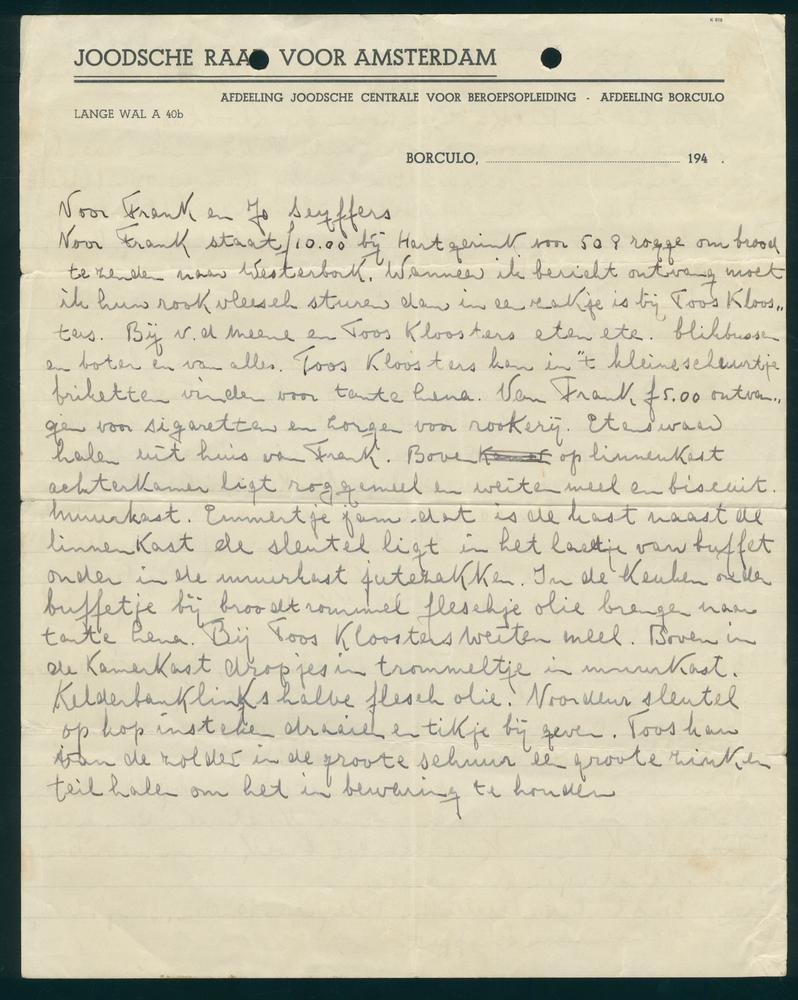 K 818
JOODSCHE RAAD VOOR AMSTERDAM
AFDEELING JOODSCHE CENTRALE VOOR BEROEPSOPLEIDING - AFDEELING BORCULO
LANGE WAL A 40b
BORCULO, 194 .
Voor Frank en Jo Seyffers
Voor Frank staat f10.00 bij Hartgerink voor 50 g rogge om brood
te zenden naar Westerbork. Wanneer ik bericht ontvang moet
ik hun rookvleesch sturen dan in een zakje is bij Toos Kloos„
ters. Bij v.d Meene en Toos Kloosters eten ete. blikbussen
en boter en van alles. Toos Kloosters kan in 't kleine scheurtje
briketten vinden voor tante Lena. Van Frank f5.00 ontvan„
gen voor sigaretten en zorgen voor rookerij. Etenswaar
halen uit huis van Frank. Boven op linnenkast
achterkamer ligt roggemeel en weitenmeel en biscuit.
muurkast. Emmertje jam dat is de kast naast de
linnenkast de sleutel ligt in het laatje van buffet
onder in de muurkast jutezakken. In de keuken onder
buffetje bij broodtrommel fleschje olie brengen naar
tante Lena. Bij Toos Kloosters weiten meel. Boven in
de Kamerkast dropjes in trommeltje in muurkast.
Kelderbank links halve flesch olie. Voordeur sleutel
op kop insteken draaien en tikje bij geven. Toos kan
van de zolder in de groote schuur een groote zinken
teil halen om het in bewaring te houden